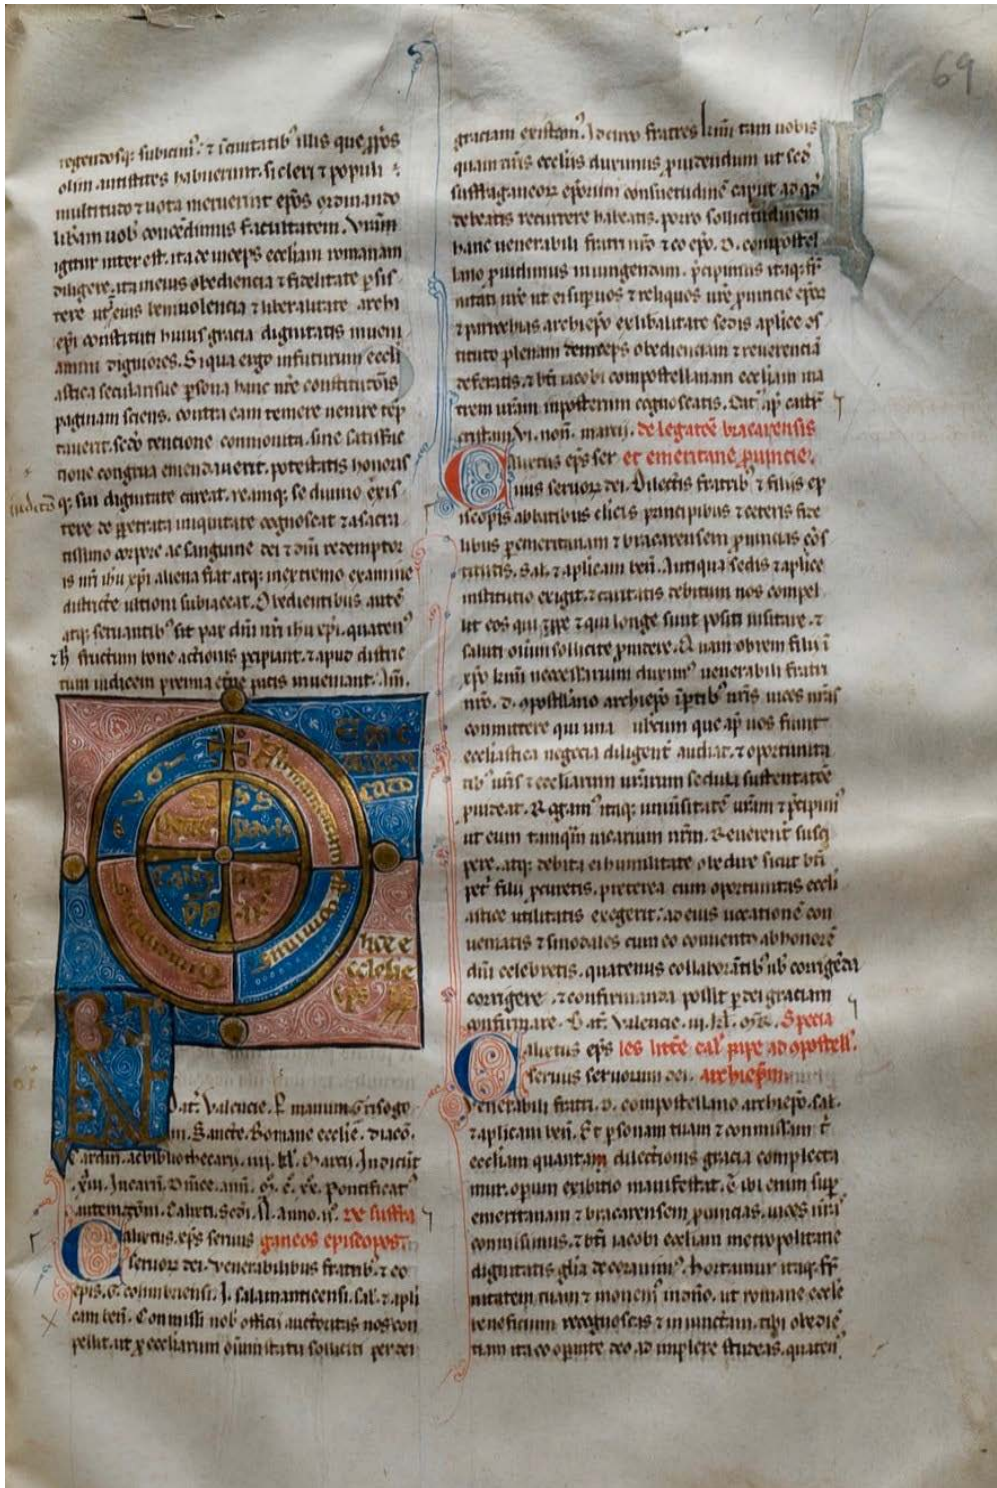 69
regendosq; subicim'. ⁊ civitatib' illis que pp̄os
olim antistites habuerint. si cleri ⁊ populi
multitudo ⁊ vota metuerint ep̄os ordinando
libam uob' concedimus facultatem. Uram
igitur interest. ita deinceps eccliam romanam
diligere. ita in eius obediencia ⁊ fidelitate psis
tere ut eius benivolencia ⁊ liberalitate archi
ep̄i constituti huius gracia dignitatis inveni
amini digniores. Si qua ergo in futurum eccli
astica secularisue psona hanc nr̄e constitucōis
paginam sciens. contra eam temere venire temp
tauerit. scdo tercione conmonita. sine satisfac
tione congrua emendaverit. potestatis honoris
q; sui dignitate careat. reamq; se divino exis
tere iudicio de ppetrata iniquitate cognoscat ⁊ a sacra
tissimo corpore ac sanguine dei ⁊ dn̄i redemptor
is nr̄i ihu xp̄i aliena fiat atq; in extremo examine
districte ultioni subiaceat. Obedientibus autē
atq; servantib' sit pax dn̄i nr̄i ihu xp̄i. quaten'
⁊ h̄ fructum bone actionis pcipiant. ⁊ apud distric
tum iudicem premia et̄ne pacis inveniant. Am̄.
Firmamentum est dominus timentibus
S S
Petrus Paulus
Calixtus pp ii
Ego
calixtus
catholice
ecclesie
ep̄s
BENE
Dat̄. Valencie. P manum Grisogo
ni. Sancte Romane ecclie. diacō.
Cardin. ac bibliothecarii. iiii. kl. Marcii. Indictiōe
xiii. Incarn̄. dn̄ice. ann̄. M. C. XX. pontificat'
autem dōni. Calixti. Scdi. PP. anno. ii. De suffra
Calixtus. ep̄s servus ganeos episcopos.
servoꝝ dei. Venerabilibus fratrib'. ⁊ co
epis. G. colimbriensi. J. salamanticensi. sal. ⁊ apli
cam ben̄. Commissi nob' officii auctoritas nos con
pellit. ut p eccliarum om̄ium statu solliciti per dei
graciam existam'. Idcirco fratres kmi tam uobis
quam uris ecclis duximus pvidendum ut sed
suffraganeoꝝ ep̄orum consuetudinē caput ad qd
debeatis recurrere habeatis. porro sollicitudinem
hanc venerabili fratri nr̄o ⁊ coep̄o. D. compostel
lano pvidimus iniungendam. p̄cipimus itaq; fr̄
nitati ur̄e ut ei sup vos ⁊ reliquos ur̄e pvincie ep̄os
⁊ parrochias archiep̄o ex libalitate sedis aplice cōs
tituto plenam deinceps obedienciam ⁊ reverenciā
deferatis. ⁊ bti iacobi compostellanam eccliam ma
trem uram inposterum cognoscatis. Dat̄. ap̄
cristam. vi. non̄. marcii. de legatōe bracarensis
Calixtus ep̄s ser et emeritane pvincie.
vus servoꝝ dei. Dilectis fratrib' ⁊ filiis ep
iscopis abbatibus clicis principibus ⁊ ceteris fide
libus p emeritanam ⁊ bracarensem pvincias cōs
titutis. Sal. ⁊ aplicam ben̄. Antiqua sedis aplice
institutio exigit. ⁊ caritatis debitum nos compel
lit ut eos qui ꝓpe ⁊ qui longe sunt positi visitare. ⁊
saluti om̄ium sollicite pvidere. Quam obrem filii ī
xp̄o kmi necessarium duxim' venerabili fratri
nr̄o. D. compostellano archiep̄o ī ptib' uris vices nr̄as
committere qui una ubcum que ap̄ vos fiunt
ecclesiastica negocia diligent̄ audiat. ⁊ oportunita
tib' uris ⁊ eccliarum urarum sedula sustentatōe
pvideat. Rogam' itaq; universitatē uram ⁊ p̄cipim'
ut eum tamqm vicarium nrm. Reverent̄ susci
pere. atq; debita ei humilitate obedire sicut bti
petri filii pcuretis. preterea cum oportunitas eccli
astice utilitatis exegerit. ad eius vocationē con
veniatis ⁊ sinodales cum eo conventus ad honorē
dn̄i celebretis. quatenus collaborātib' vob' corrigēda
corrigere. ⁊ confirmanda possit p dei graciam
confirmare. Dat̄. Valencie. iii. kl. mr̄. Specia
Calixtus ep̄s les litt̄e cal' pape ad cōpostell'.
servus servorum dei. archiep̄m
Venerabili fratri. D. compostellano archiep̄o. sal.
⁊ aplicam ben̄. Et psonam tuam ⁊ conmissam t̄
eccliam quantam dilectionis gracia complecta
mur. opum exibitio manifestat. ē ibi enim sup
emeritanam ⁊ bracarensem pvincias. vices nr̄as
commisimus. ⁊ bti iacobi eccliam metropolitane
dignitatis glīa decoravim'. Hortamur itaq; fr̄
nitatem tuam ⁊ monem' in dn̄o. ut romane eccle
beneficium recognoscas ⁊ iniunctam. tibi obedie
tiam ita cooperante deo adimplere studeas. quaten'